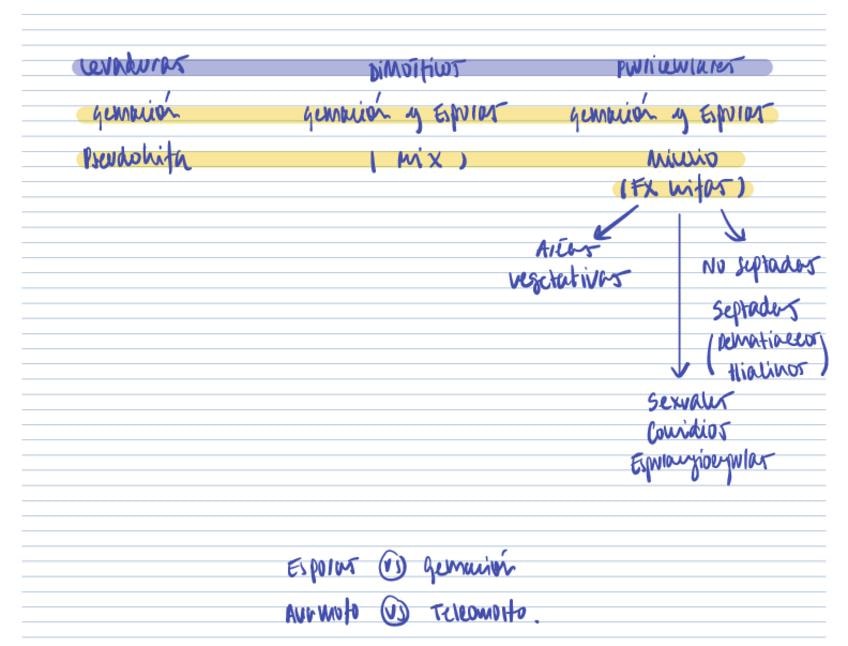 Levaduras Dimórficos Pluricelulares
Gemación Gemación y Esporas Gemación y Esporas
Pseudohifa ( Mix ) Micelio
(FX hifas)
Aéreas
vegetativas
No septadas
Septadas
(Dematiaceos
Hialinos)
Sexuales
Conidios
Esporas vs Gemación
Anamorfo vs Teleomorfo.